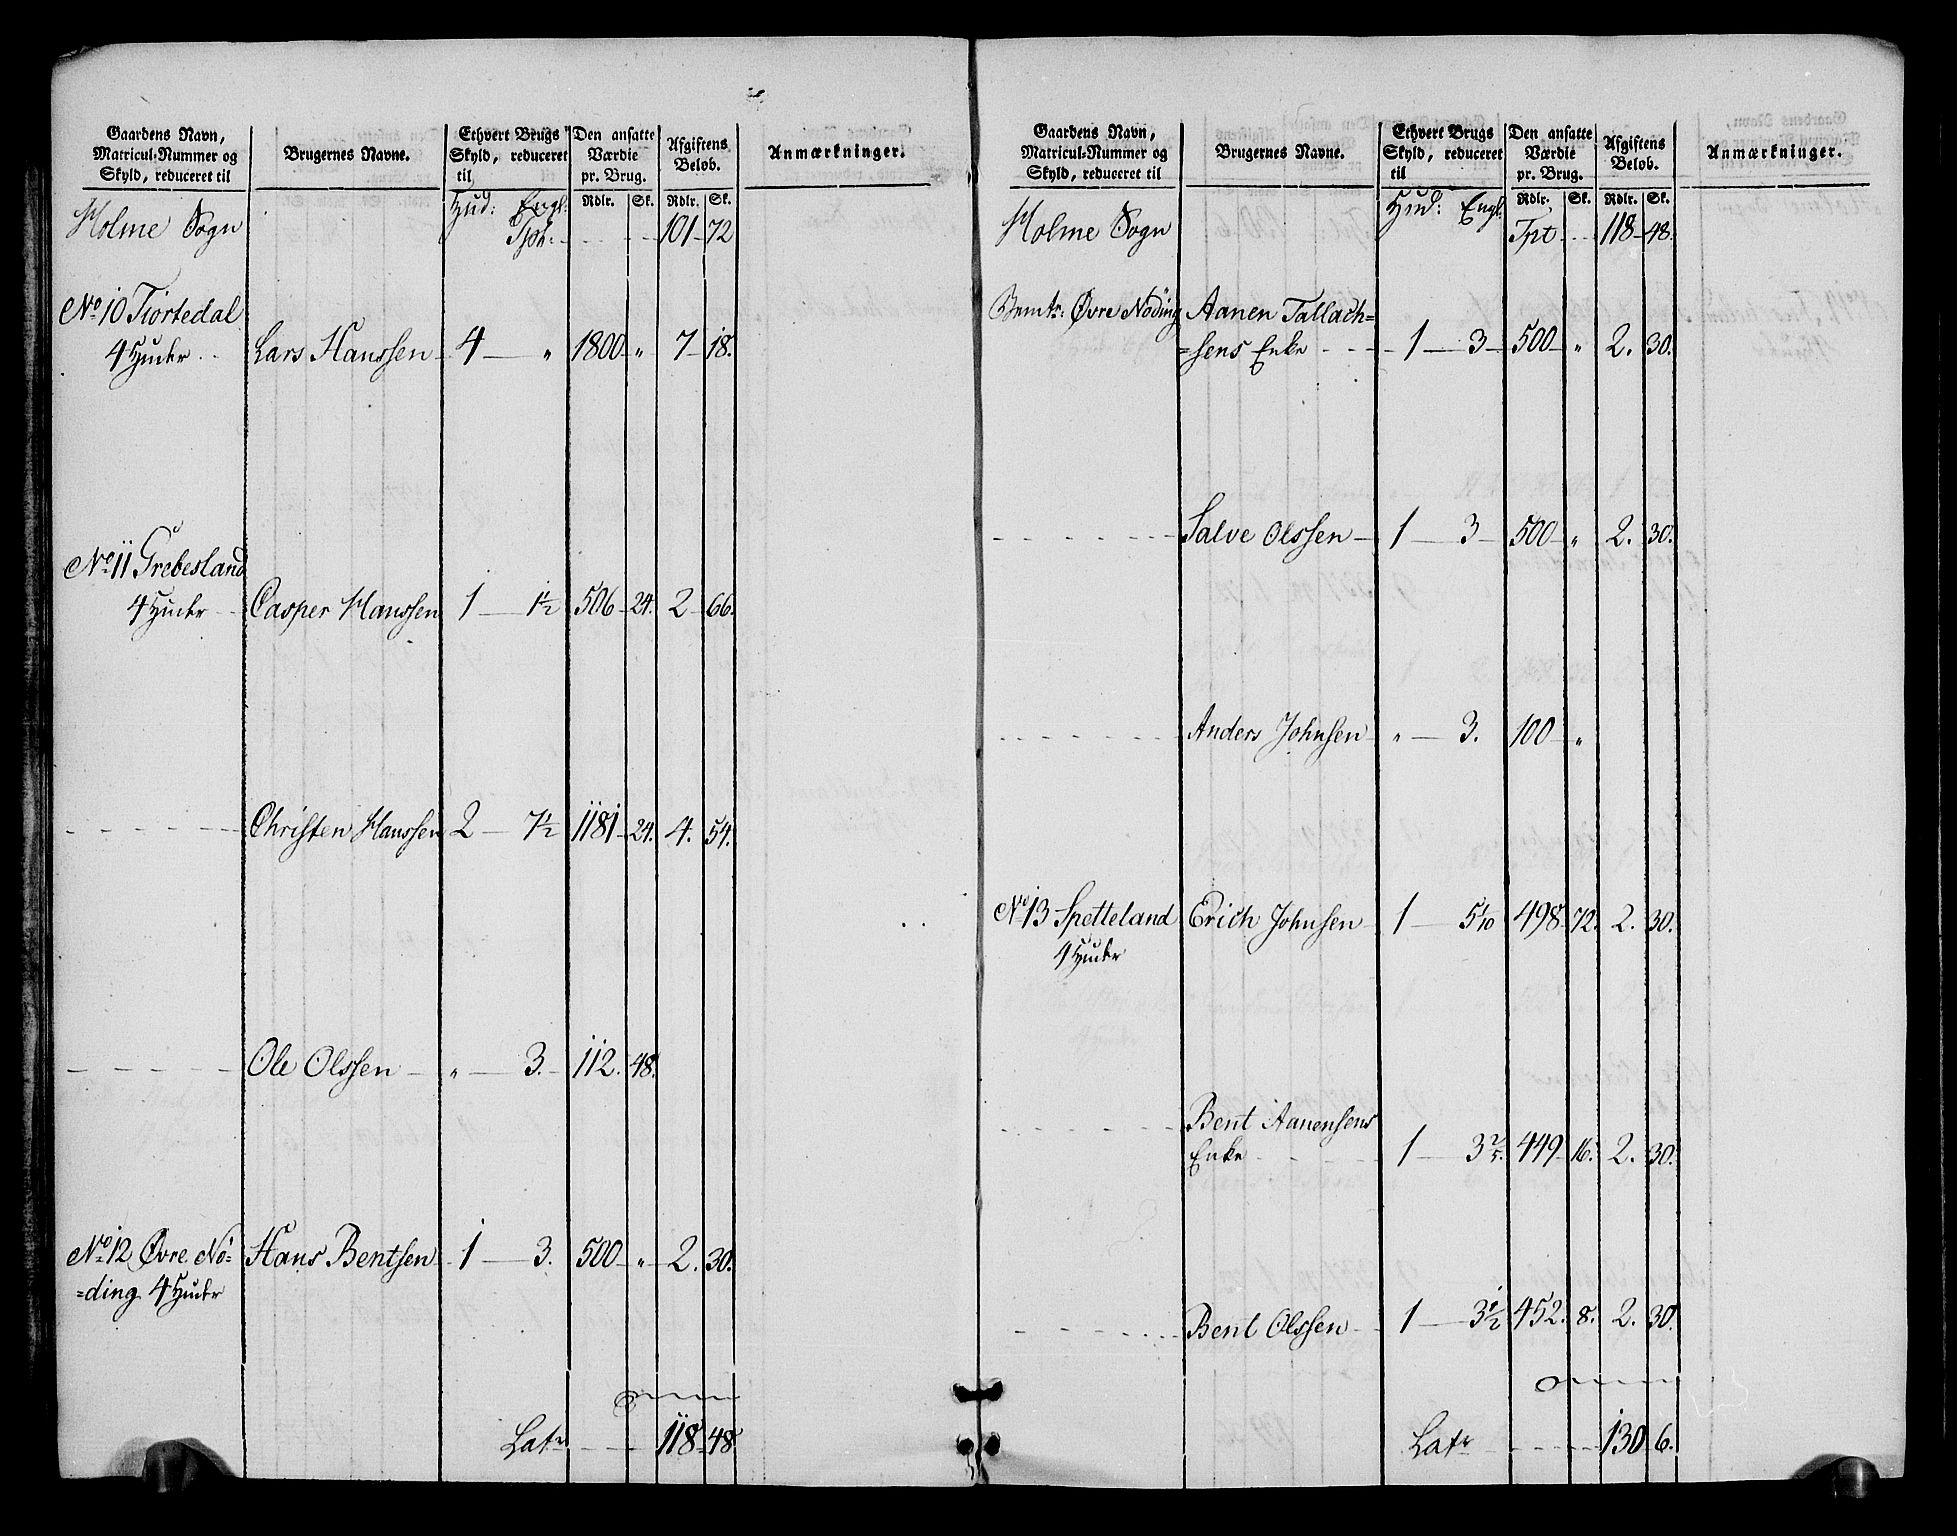 Gaardens Navn, Matricul-Nummer og Skyld, reduceret til | Brugernes Navne. | Ethvert Brugs Skyld, reduceret til | Den ansatte Værdie pr. Brug. | Afgiftens Beløb. | Anmærkninger.
Hud: Engl: | Rdlr. Sk. | Rdlr. Sk.
Holme Sogn Tpt. 101 72
No 10 Tiørtedal
4 Huder Lars Hanssen 4 " 1800 " 7 18.
No 11 Trebesland
4 Huder Casper Hanssen 1 1½ 506 24. 2 66.
Christen Hanssen 2 7½ 1181 24. 4. 54.
Ole Olssen " 3. 112. 48.
No 12 Øvre Nö= Hans Bentsen 1 3. 500 " 2. 30.
=ding 4 Huder
Latr 118 48.
Gaardens Navn, Matricul-Nummer og Skyld, reduceret til | Brugernes Navne. | Ethvert Brugs Skyld, reduceret til | Den ansatte Værdie pr. Brug. | Afgiftens Beløb. | Anmærkninger.
Hud: Engl. | Rdlr. Sk. | Rdlr. Sk.
Holme Sogn Tpt 118 48.
Øvre Nöding Aanen Tallach=
=sens Enke 1 3 500 " 2. 30.
Salve Olssen 1 3 500 " 2. 30.
Anders Johnsen " 3. 100 "
No 13 Spetteland Erich Johnsen 1 5 1/10 498 72. 2. 30.
4 Huder
Bent Aanensens
Enke 1 3 2/5. 449 16. 2. 30.
Bent Olssen 1 3½ 452. 8. 2. 30.
Latr 130 6.